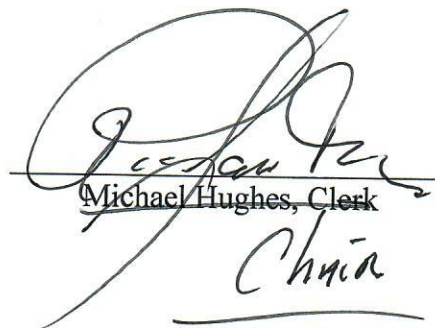 Michael Hughes, Clerk
Chair